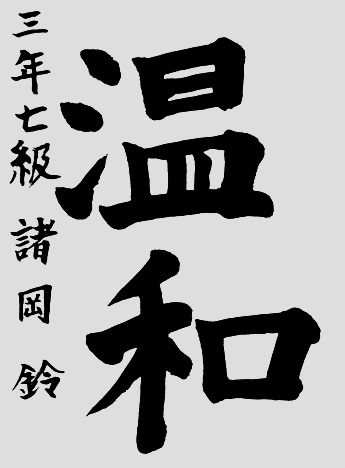 温和
三年七級 諸岡 鈴